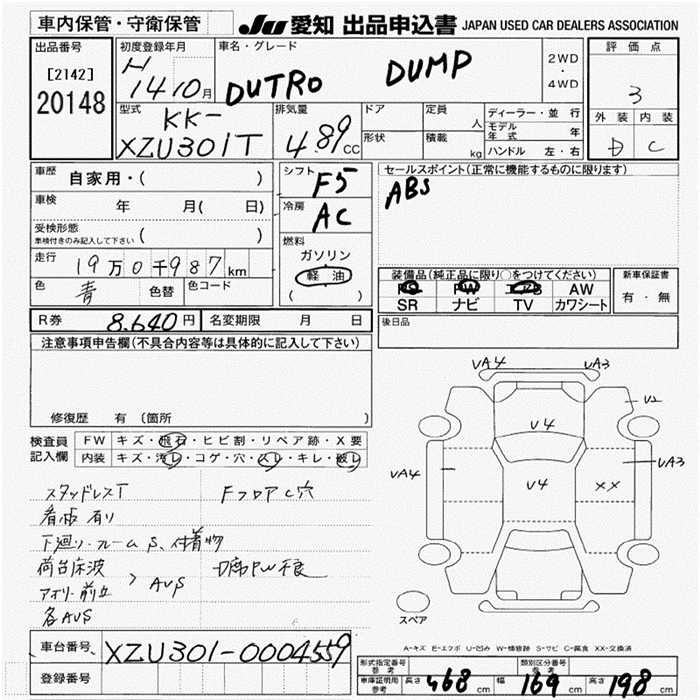 車内保管・守衛保管
JU 愛知 出品申込書 JAPAN USED CAR DEALERS ASSOCIATION
出品番号
[2142]
20148
初度登録年月
H
14 10月
車名・グレード
DUTRO DUMP
2WD
・
4WD
評価点
3
外装 内装
D C
型式
KK-
XZU301T
排気量
4.89cc
ドア
形状
定員 人
積載 kg
ディーラー・並行
モデル年式 年
ハンドル 左・右
車歴 自家用・( )
車検 年 月( 日)
受検形態
車検付きのみ記入して下さい ( )
走行 19万0千987km
色 青 色替 色コード
シフト F5
冷房 AC
燃料
ガソリン
軽油
( )
セールスポイント(正常に機能するものに限ります)
ABS
装備品(純正品に限り○をつけてください)
PS PW エアB AW
SR ナビ TV カワシート
新車保証書
有・無
後日品
R券 8,640円 名変期限 月 日
注意事項申告欄(不具合内容等は具体的に記入して下さい)
修復歴 有 (箇所 )
検査員
記入欄
FW キズ・飛石・ヒビ割・リペア跡・X要
内装 キズ・汚レ・コゲ・穴・スレ・キレ・破レ
スタッドレスT
看板有り
下廻り・フレームS、付着物
荷台床波
アオリ・前立 > AUS
各AUS
Fフロアc穴
D席PW不良
UA4 UA3
U2
U4
UA4 U4 XX UA3
スペア
A-キズ E-エクボ U-凹み W-補修跡 S-サビ C-腐食 XX-交換済
車台番号 XZU301-0004559
登録番号
形式指定番号
参考
類別区分番号
参考
車庫証明用
参考
長さ 468cm 幅 169cm 高さ 198cm